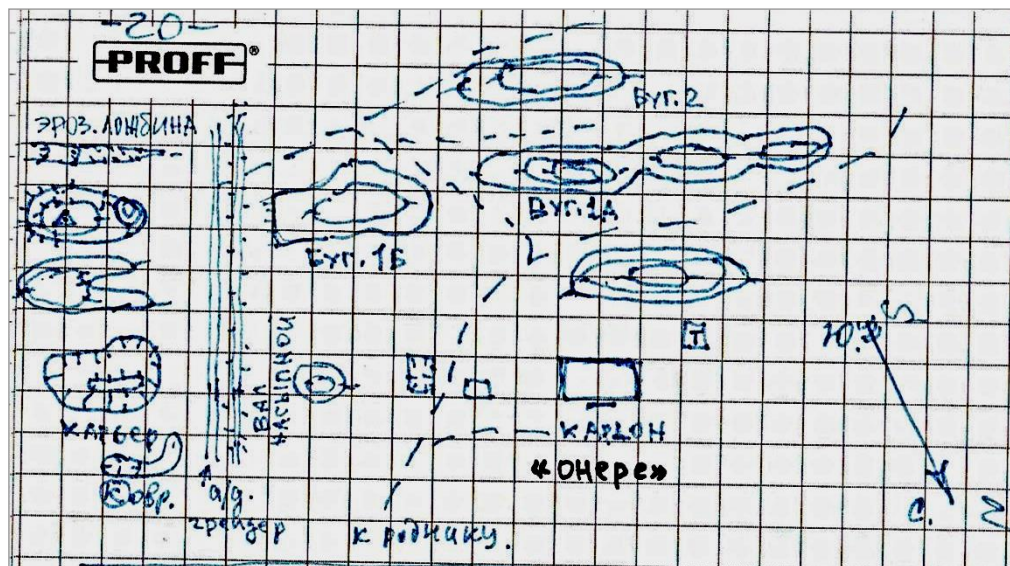 -20-
PROFF®
БУГ.2
ЭРОЗ. ЛОЖБИНА
БУГ.1А
БУГ. 1Б
S
Ю.
Т
ВАЛ
НАСЫПНОЙ
КАРЬЕР
КАРДОН
«ОНЕРЕ»
Ковр.
а/д.
грейдер
к роднику.
С.
N